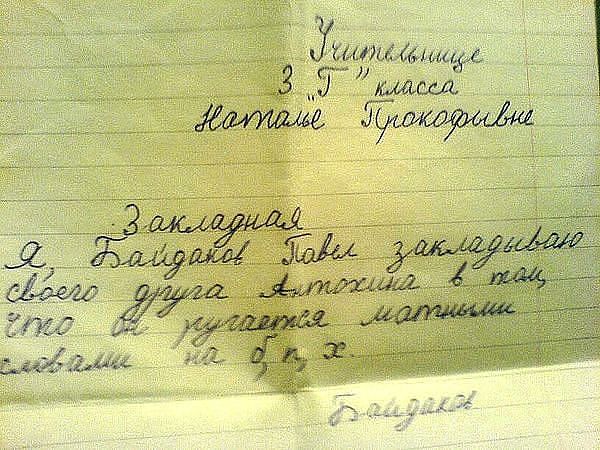 Учительнице
3 „Г" класса
Наталье Прокофьивне
Закладная
Я, Байдаков Павел закладываю
своего друга Антохина в том,
что он ругается матными
словами на б, п, х.
Байдаков